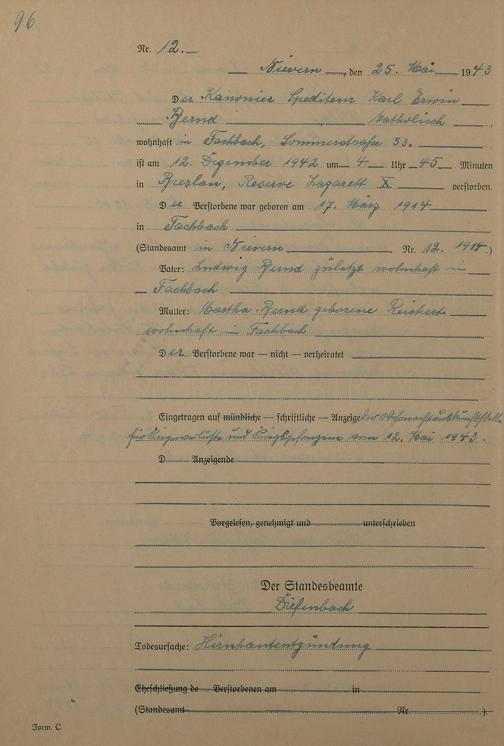 96
Nr. 12.
Nievern, den 25. Mai 1943
Der Kanonier Spediteur Karl Erwin
Bernd Katholisch
wohnhaft in Fachbach, Sommerstraße 53.
ist am 12. Dezember 1942 um 4 Uhr 45 Minuten
in Breslau, Reserve Lazarett X verstorben.
Der Verstorbene war geboren am 17. März 1914
in Fachbach
(Standesamt in Nievern Nr. 12. 1914)
Vater: Ludwig Bernd zuletzt wohnhaft in
Fachbach
Mutter: Martha Bernd geborene Reichert
wohnhaft in Fachbach
Der Verstorbene war — nicht — verheiratet
Eingetragen auf mündliche — schriftliche — Anzeige der Wehrmachtauskunftstelle
für Kriegerverluste und Kriegsgefangene vom 12. Mai 1943.
D Anzeigende
Vorgelesen, genehmigt und unterschrieben
Der Standesbeamte
Diefenbach
Todesursache: Hirnhautentzündung
Eheschließung de Verstorbenen am in
(Standesamt Nr. ).
Form. C